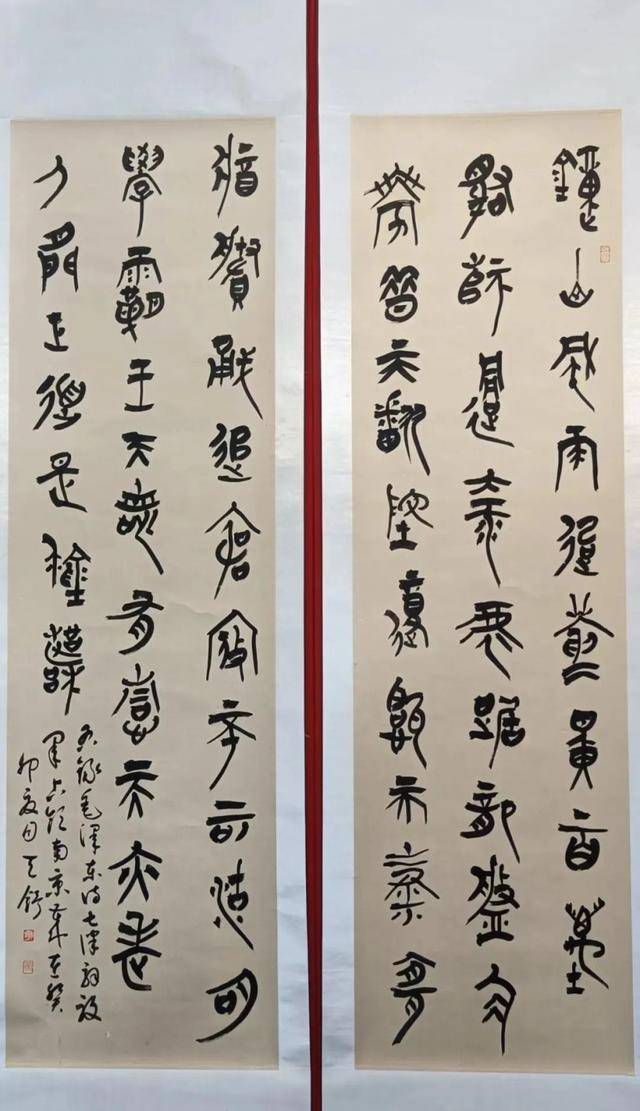 鍾山風雨起蒼黃百萬
雄師過大江虎踞龍盤今
勝昔天翻地覆慨而慷宜
將賸勇追窮寇不可沽名
學霸王天若有情天亦老
人間正道是滄桑
右錄毛澤東詩七律解放
軍占領南京歲在癸
卯夏日王舒